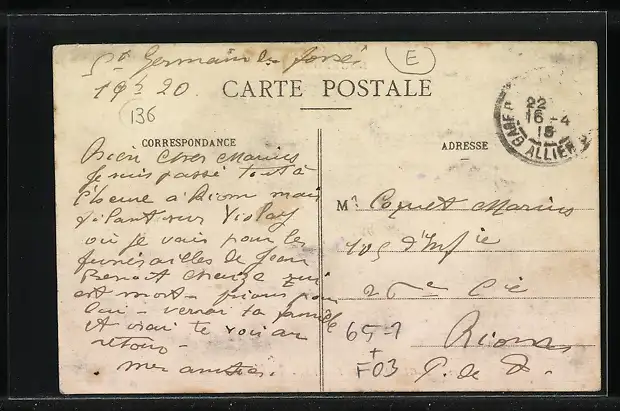 St Germain des fossés
19h20
E
136
CARTE POSTALE
CORRESPONDANCE
ADRESSE
GARE D
22
16-4
15
ALLIER
Bien cher Marius
Je suis passé tout à
l'heure à Riom mais
filant sur Violay
où je vais pour les
funérailles de Jean
Benoit
est mort - prions pour
lui - verrai ta famille
et irai te voir au
retour -
mes amitiés.
Mr Coquet Marius
105 d'Infie
26e Cie
Riom
P. de D.
65-1
+
F03